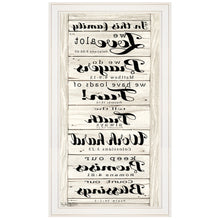 In this family
we
Love alot
we do
Prayers
Matthew
we have loads of
Fun!
tell the
Truth
Work hard
Colossians 3:23
keep our
Promises
Romans 4:21
count our
Blessings